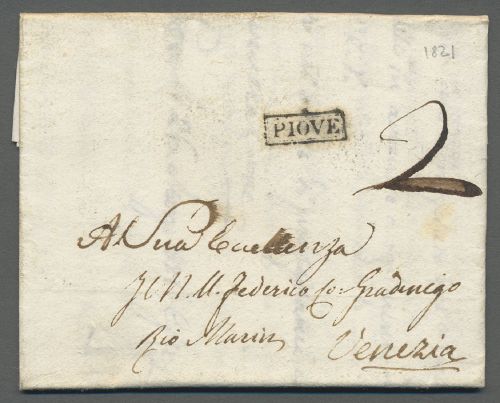 1821
PIOVE
2
A Sua Eccellenza
Federico Co: Gradenigo
Rio Marin Venezia